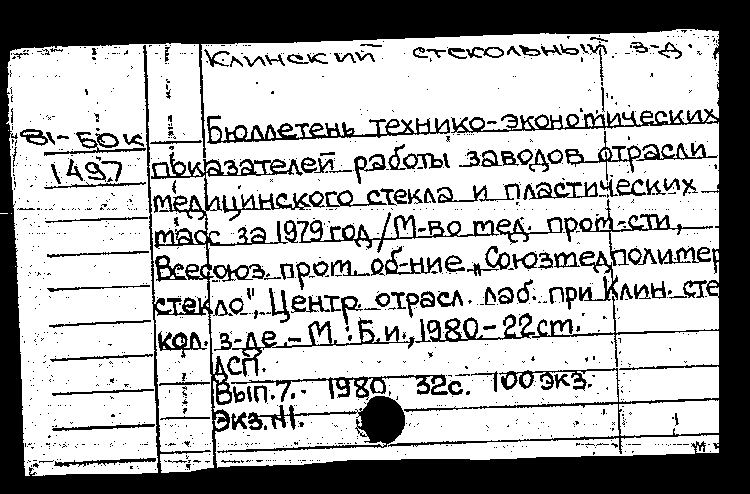 Клинский стекольный з-д.
81-БОК
1497
Бюллетень технико-экономических
показателей работы заводов отрасли
медицинского стекла и пластических
масс за 1979 год / М-во мед. пром-сти,
Всесоюз. пром. об-ние „Союзмедполимер
стекло", Центр. отрасл. лаб. при Клин. сте
кол. з-де. - М.: Б.и., 1980. - 22 см.
ДСП.
Вып. 7. - 1980. 32 с. 100 экз.
Экз. N1.